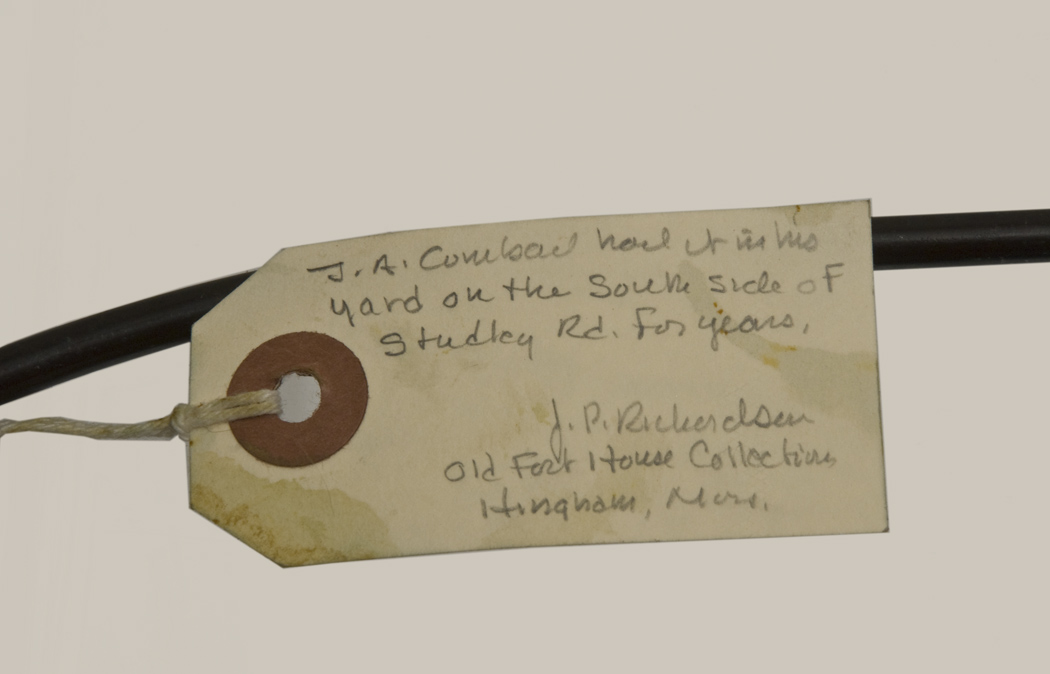 J. A. had it in his
yard on the South side of
Studley Rd. For years,
J. P. Richardson
Old Fort House Collections
Hingham, Mass.